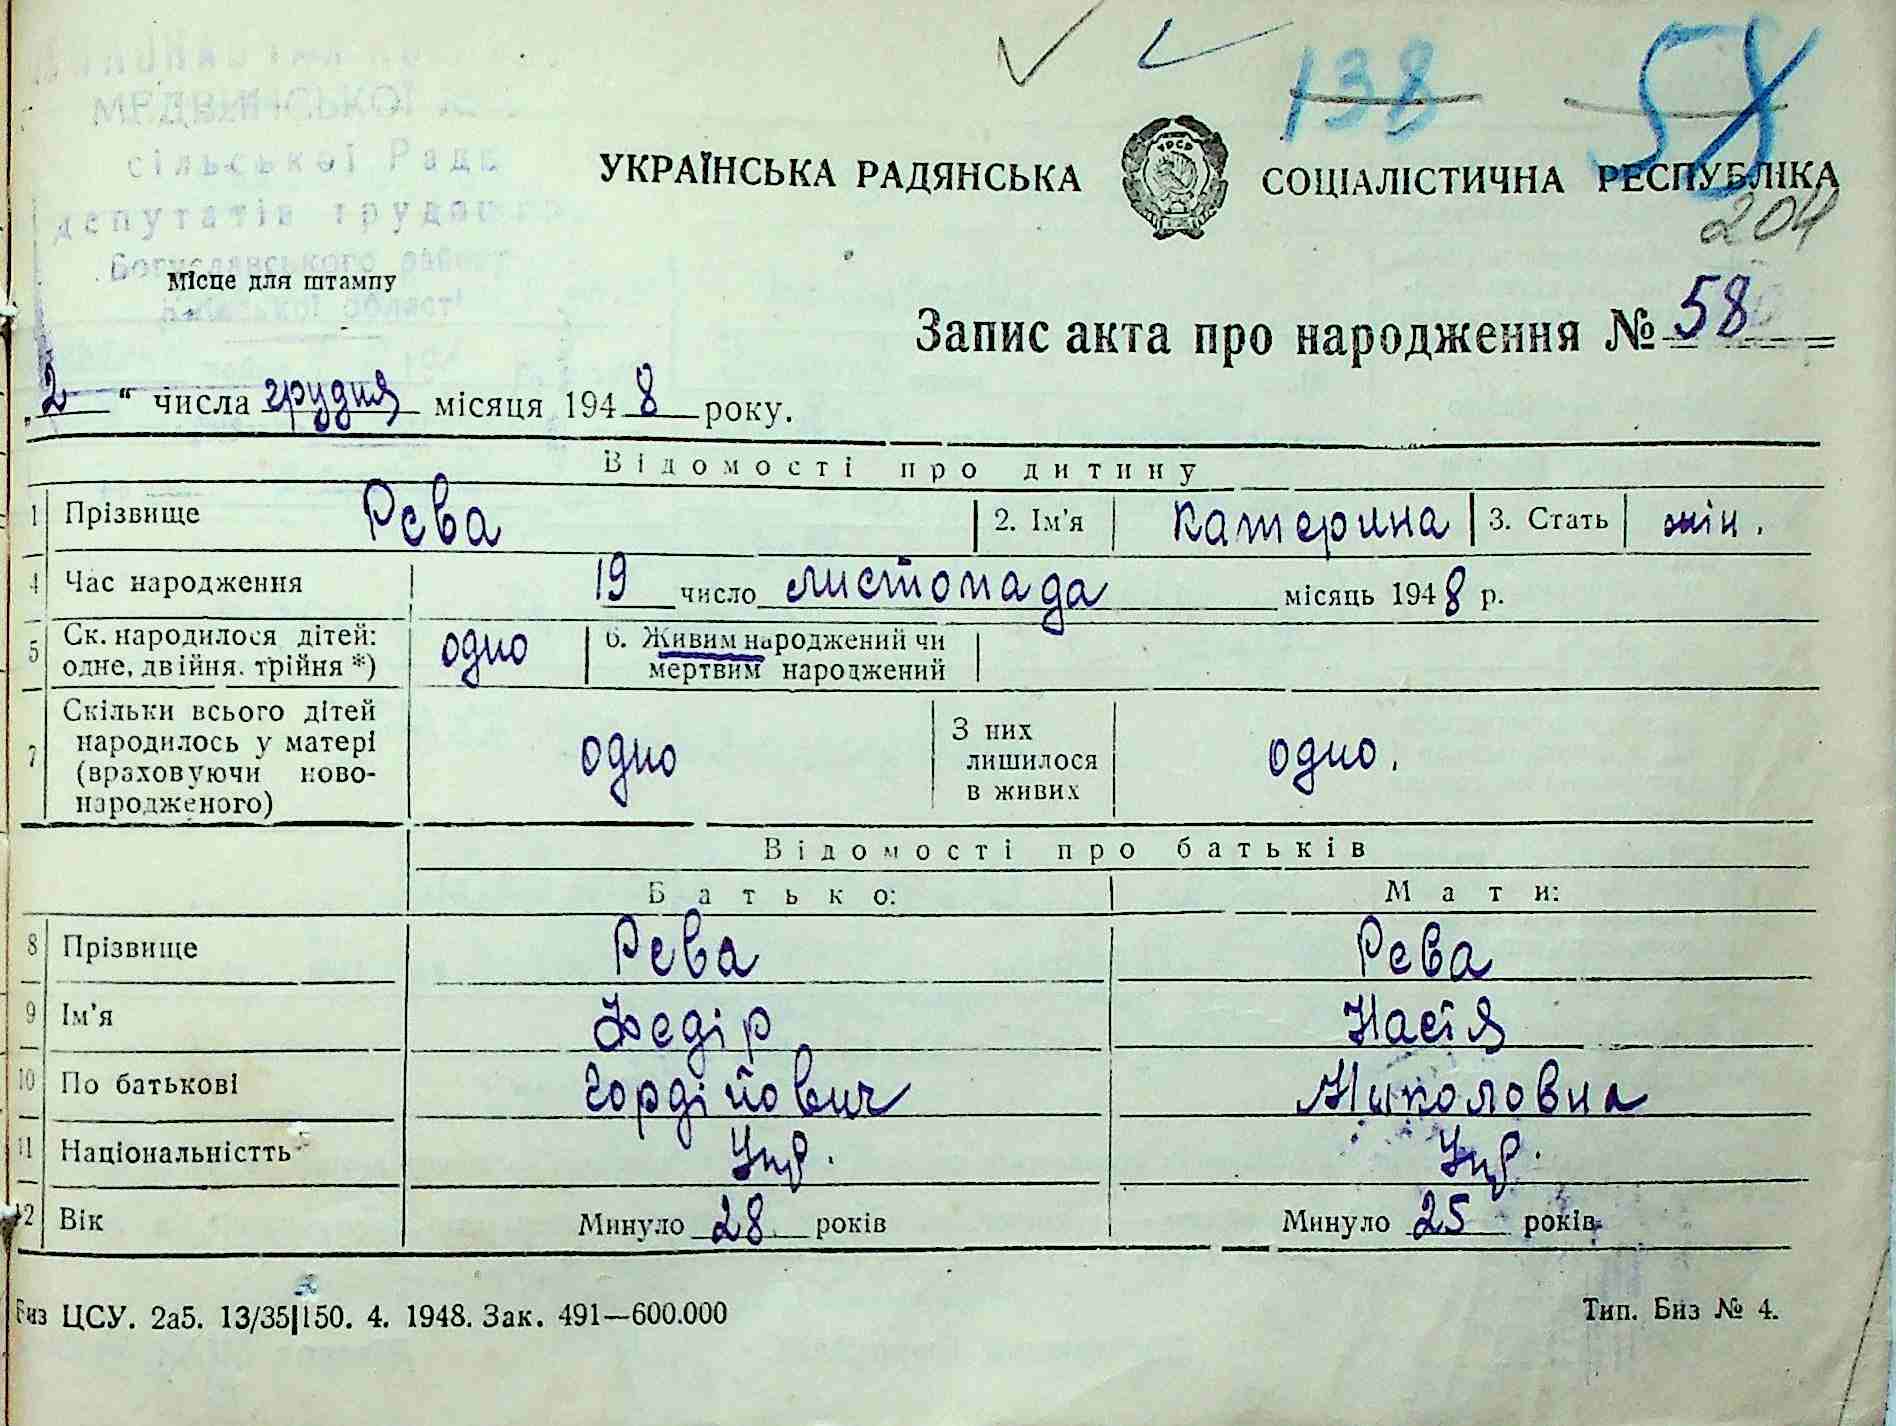 МЕДВИНСЬКОЇ
сільської Ради
депутатів трудо
Богуславського району
Київської області
138 58
УКРАЇНСЬКА РАДЯНСЬКА УРСР СОЦІАЛІСТИЧНА РЕСПУБЛІКА
204
Місце для штампу
Запис акта про народження № 58
„2“ числа грудня місяця 1948 року.
Відомості про дитину
1 Прізвище Рева 2. Ім'я Катерина 3. Стать жін.
4 Час народження 19 число листопада місяць 1948 р.
5 Ск. народилося дітей: одно 6. Живим народжений чи
одне, двійня. трійня *) мертвим народжений
7 Скільки всього дітей
народилось у матері
(враховуючи ново-
народженого) одно
З них
лишилося
в живих одно.
Відомості про батьків
Батько: Мати:
8 Прізвище Рева Рева
9 Ім'я Федір Настя
10 По батькові Гордійович Николовна
11 Національністть Укр. Укр.
12 Вік Минуло 28 років Минуло 25 років
Биз ЦСУ. 2а5. 13/35|150. 4. 1948. Зак. 491—600.000 Тип. Биз № 4.